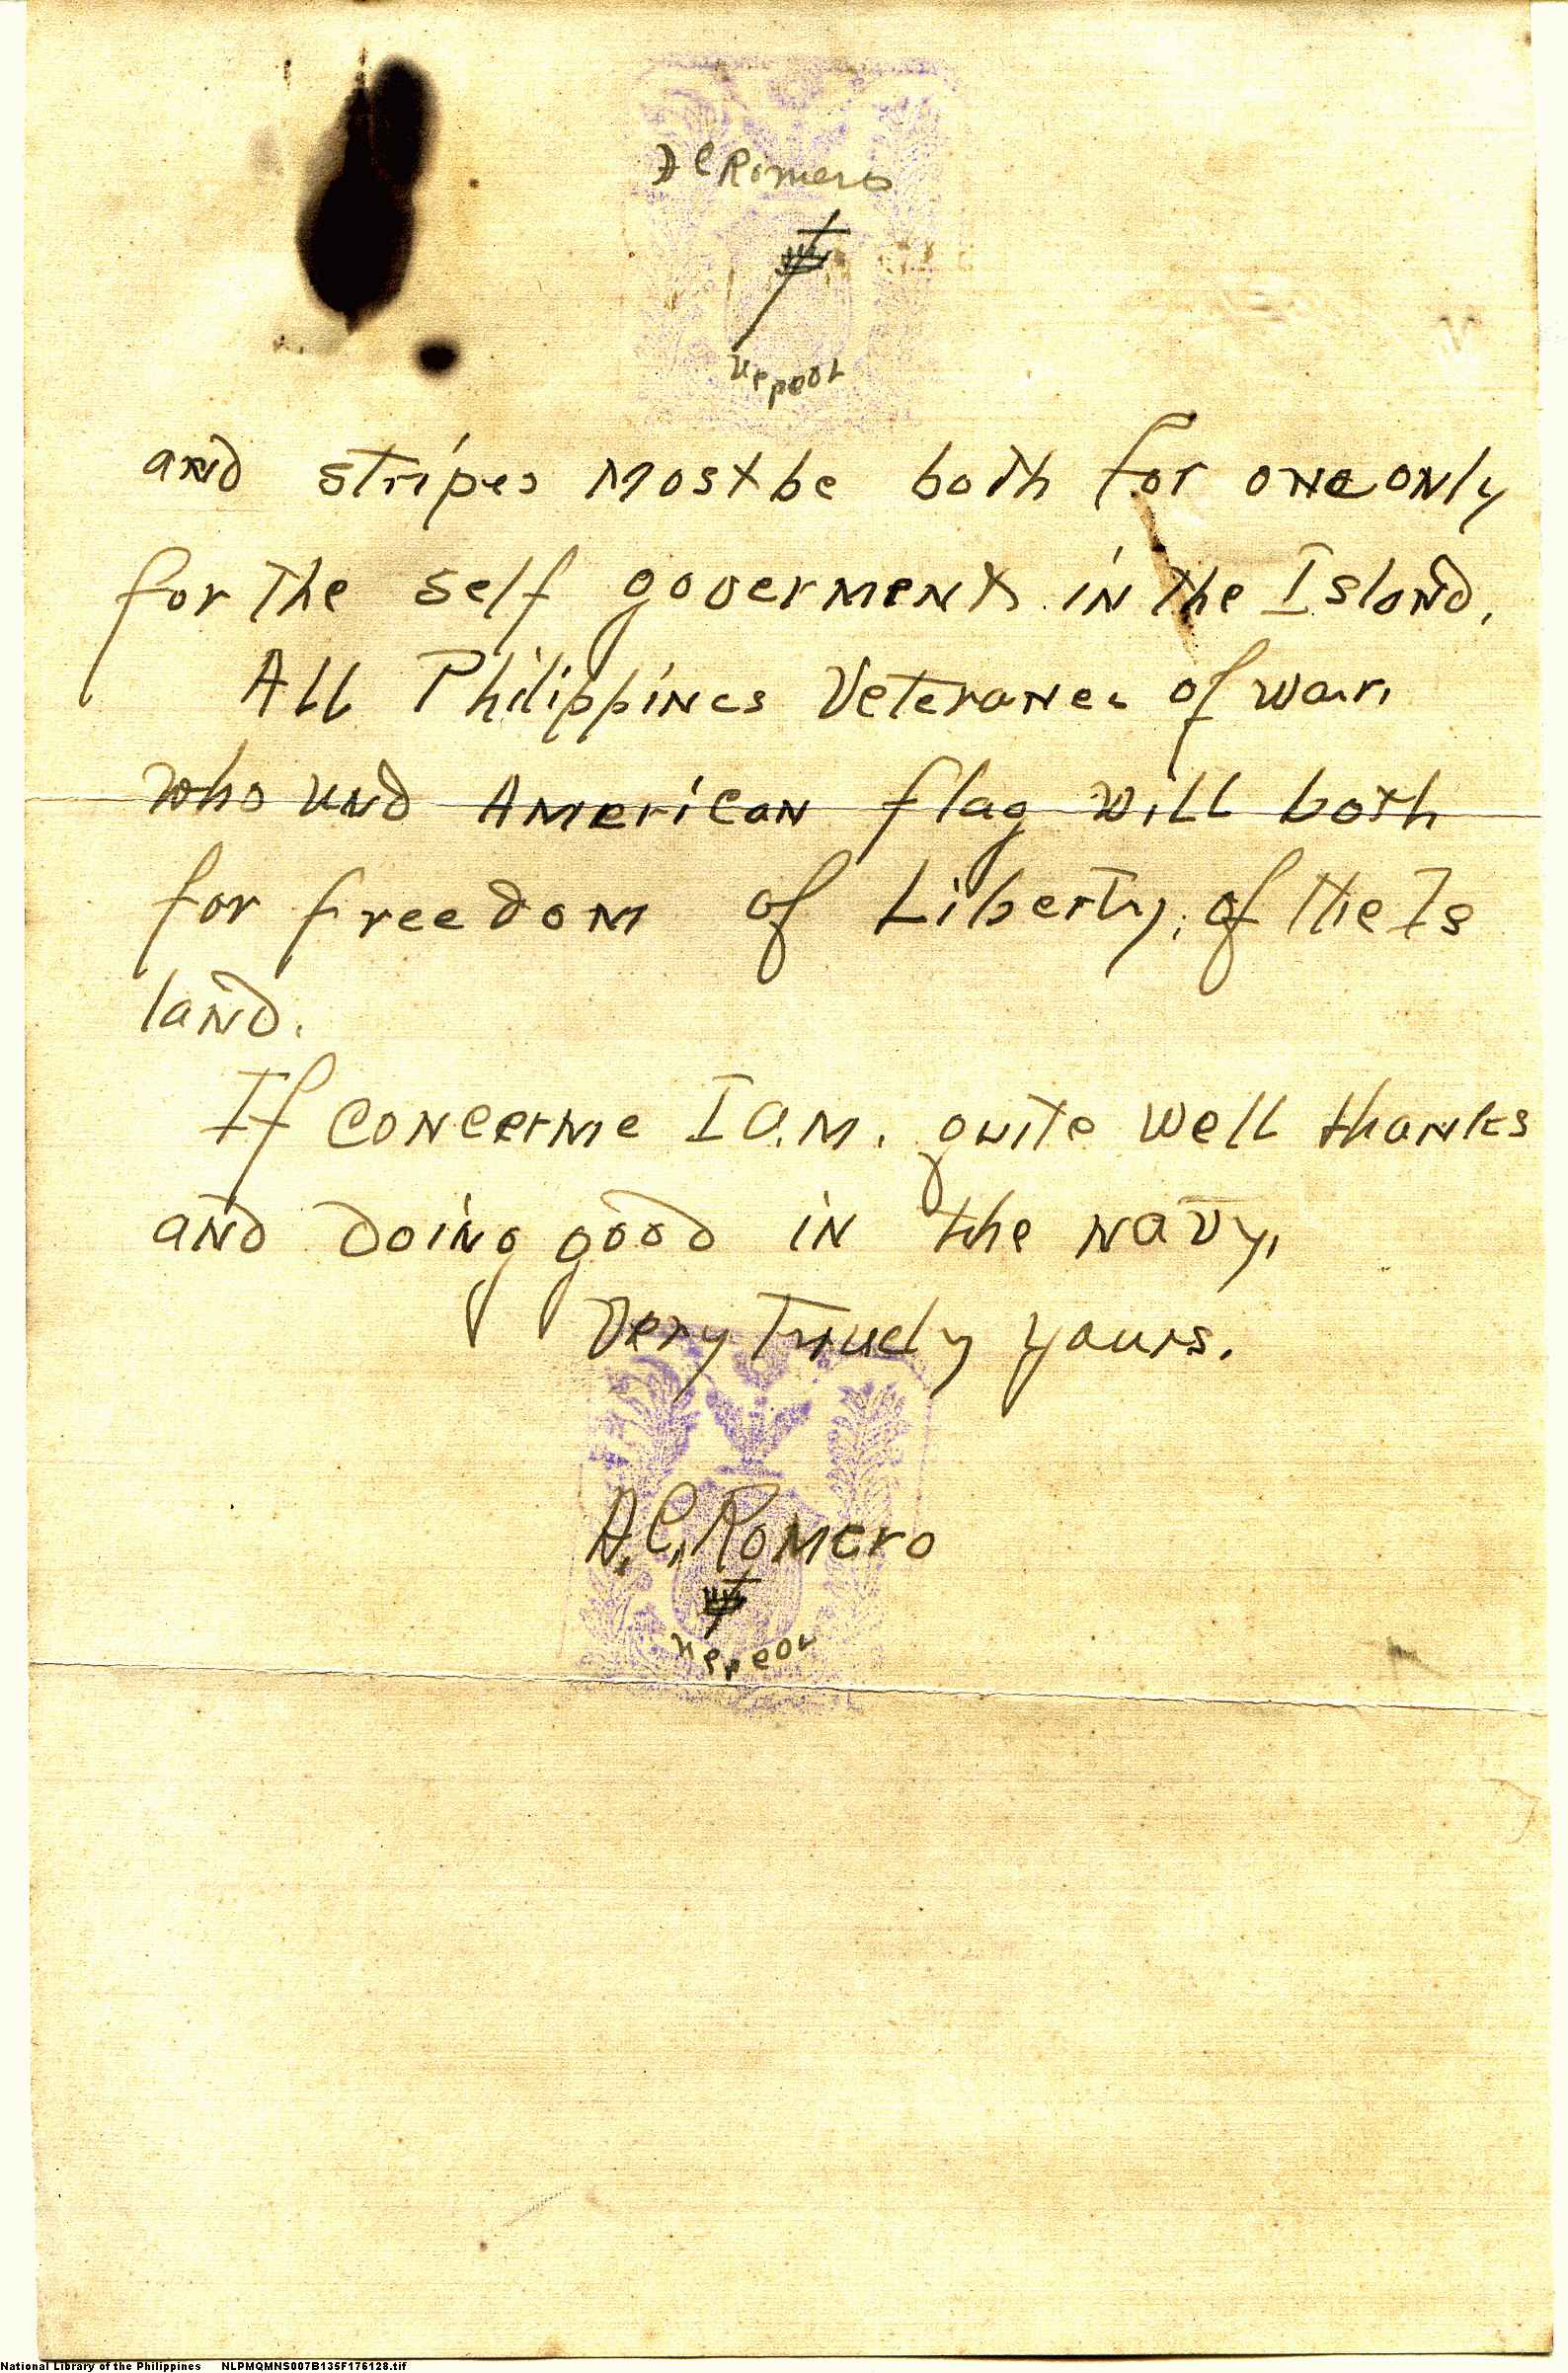 A C Romero
and stripes most be both for one only
for the self goverment in the Island.
All Philippines Veteranes of war.
who und American flag will both
for freedom of Liberty. of the Is
land.
If concerme I am. quite well thanks
and doing good in the navy.
Very Truely yours.
A. C. Romero
National Library of the Philippines NLPMQMNS007B135F176128.tif